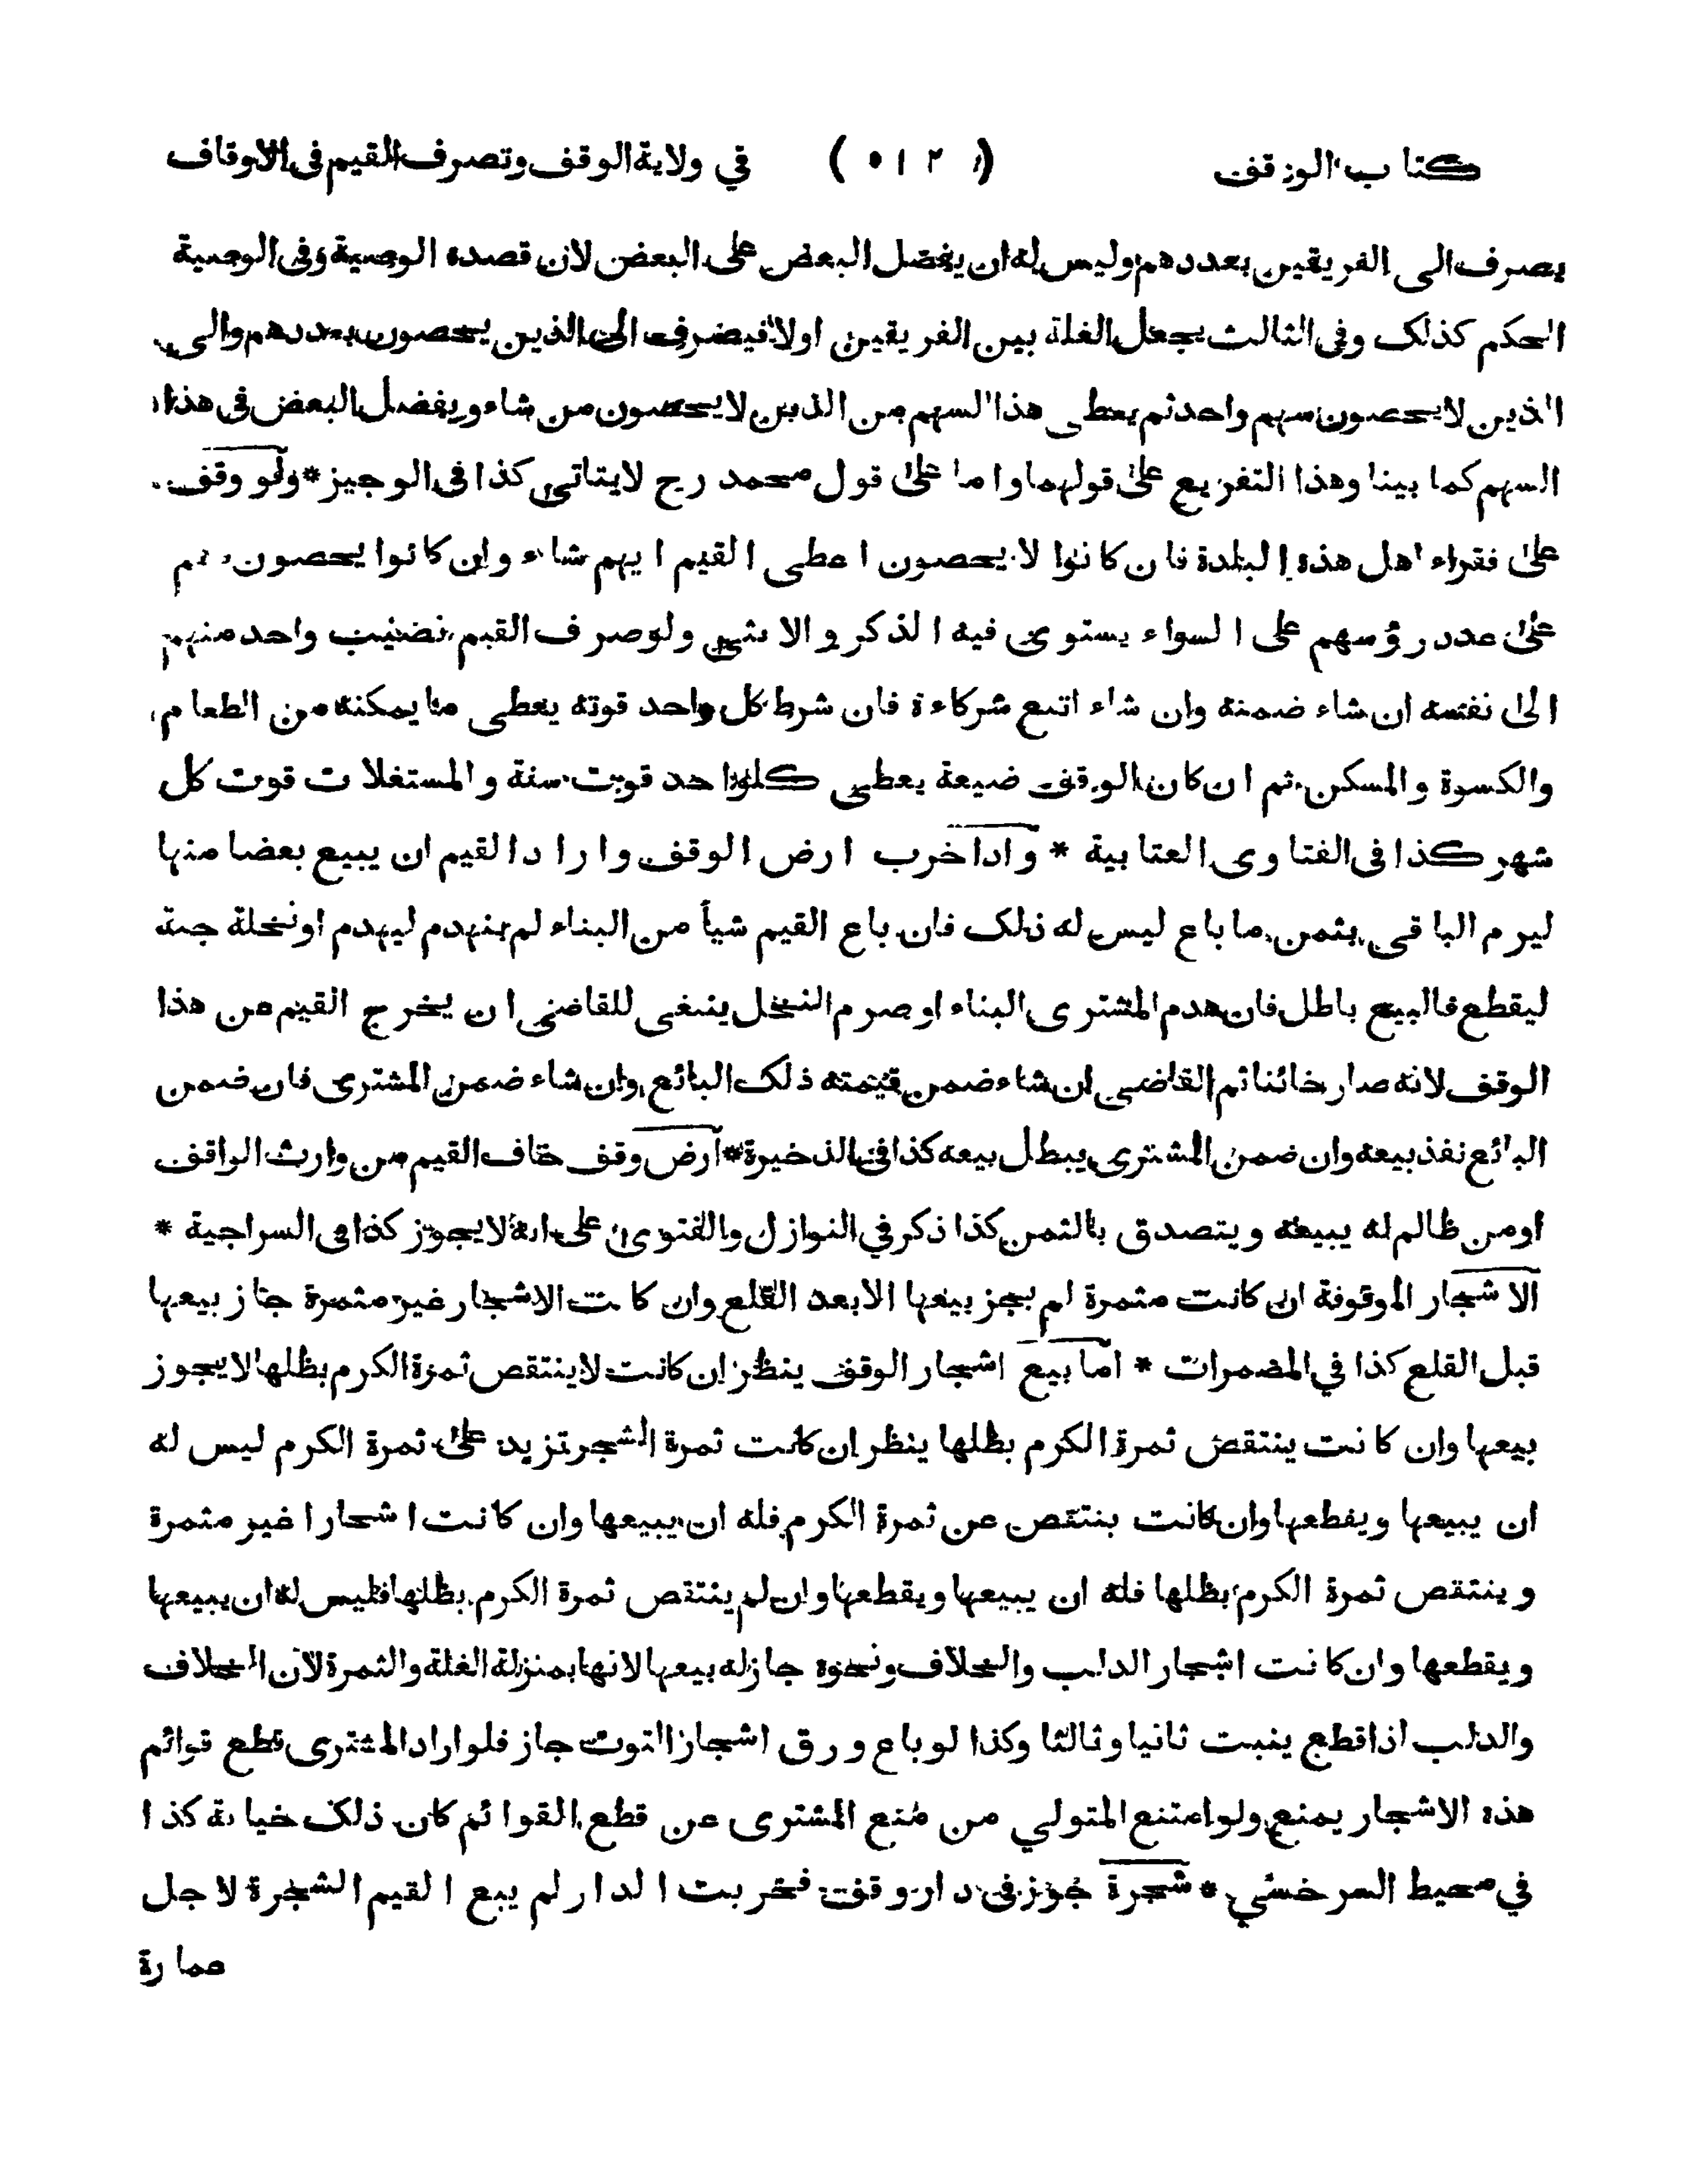 كتاب الوقف ( ٥١٢ ) في ولاية الوقف وتصرف القيم فى الاوقاف
يصرف الى الفريقين بعددهم وليس له ان يفضل البعض على البعض لان قصده الوصية وفى الوصية
الحكم كذلك وفى الثالث يجعل الغلة بين الفريقين اولا فيصرف الى الذين يحصون بعددهم والى
الذين لا يحصون سهم واحد ثم يعطى هذا السهم من الذين لا يحصون من شاء ويفضل البعض فى هذا
السهم كما بينا وهذا التفريع على قولهما واما على قول محمد رح لا يتاتى كذا فى الوجيز * ولو وقف
على فقراء اهل هذه البلدة فان كانوا لا يحصون اعطى القيم ايهم شاء وان كانوا يحصون
على عدد رؤسهم على السواء يستوى فيه الذكر والانثى ولو صرف القيم نصيب واحد منهم
الى نفسه ان شاء ضمنه وان شاء اتبع شركاءه فان شرط كل واحد قوته يعطى ما يمكنه من الطعام
والكسوة والمسكن ثم ان كان الوقف ضيعة يعطى كلواحد قوت سنة والمستغلات قوت كل
شهر كذا فى الفتاوى العتابية * واذا خرب ارض الوقف واراد القيم ان يبيع بعضا منها
ليرم الباقى بثمن ما باع ليس له ذلك فان باع القيم شيأ من البناء لم ينهدم ليهدم او نخلة حية
ليقطع فالبيع باطل فان هدم المشترى البناء او صرم النخل ينبغى للقاضى ان يخرج القيم عن هذا
الوقف لانه صار خائنا ثم القاضى ان شاء ضمن قيمته ذلك البائع وان شاء ضمن المشترى فان ضمن
البائع نفذ بيعه وان ضمن المشترى يبطل بيعه كذا فى الذخيرة * ارض وقف خاف القيم من وارث الواقف
او من ظالم له يبيعه ويتصدق بالثمن كذا ذكر في النوازل والفتوى على انه لا يجوز كذا فى السراجية *
الاشجار الموقوفة ان كانت مثمرة لم يجز بيعها الا بعد القلع وان كانت الاشجار غير مثمرة جاز بيعها
قبل القلع كذا في المضمرات * اما بيع اشجار الوقف ينظر ان كانت لا ينتقص ثمرة الكرم بظلها لا يجوز
بيعها وان كانت ينتقص ثمرة الكرم بظلها ينظر ان كانت ثمرة الشجر تزيد على ثمرة الكرم ليس له
ان يبيعها ويقطعها وان كانت ينتقص عن ثمرة الكرم فله ان يبيعها وان كانت اشجارا غير مثمرة
وينتقص ثمرة الكرم بظلها فله ان يبيعها ويقطعها وان لم ينتقص ثمرة الكرم بظلها فليس له ان يبيعها
ويقطعها وان كانت اشجار الدلب والخلاف ونحوه جاز له بيعها لانها بمنزلة الغلة والثمرة لان الخلاف
والدلب اذا قطع ينبت ثانيا وثالثا وكذا لو باع ورق اشجار التوت جاز فلو اراد المشترى قطع قوائم
هذه الاشجار يمنع ولو امتنع المتولي من منع المشترى عن قطع القوائم كان ذلك خيانة كذا
في محيط السرخسي * شجرة جوز فى دار وقف فخربت الدار لم يبع القيم الشجرة لاجل
عمارة